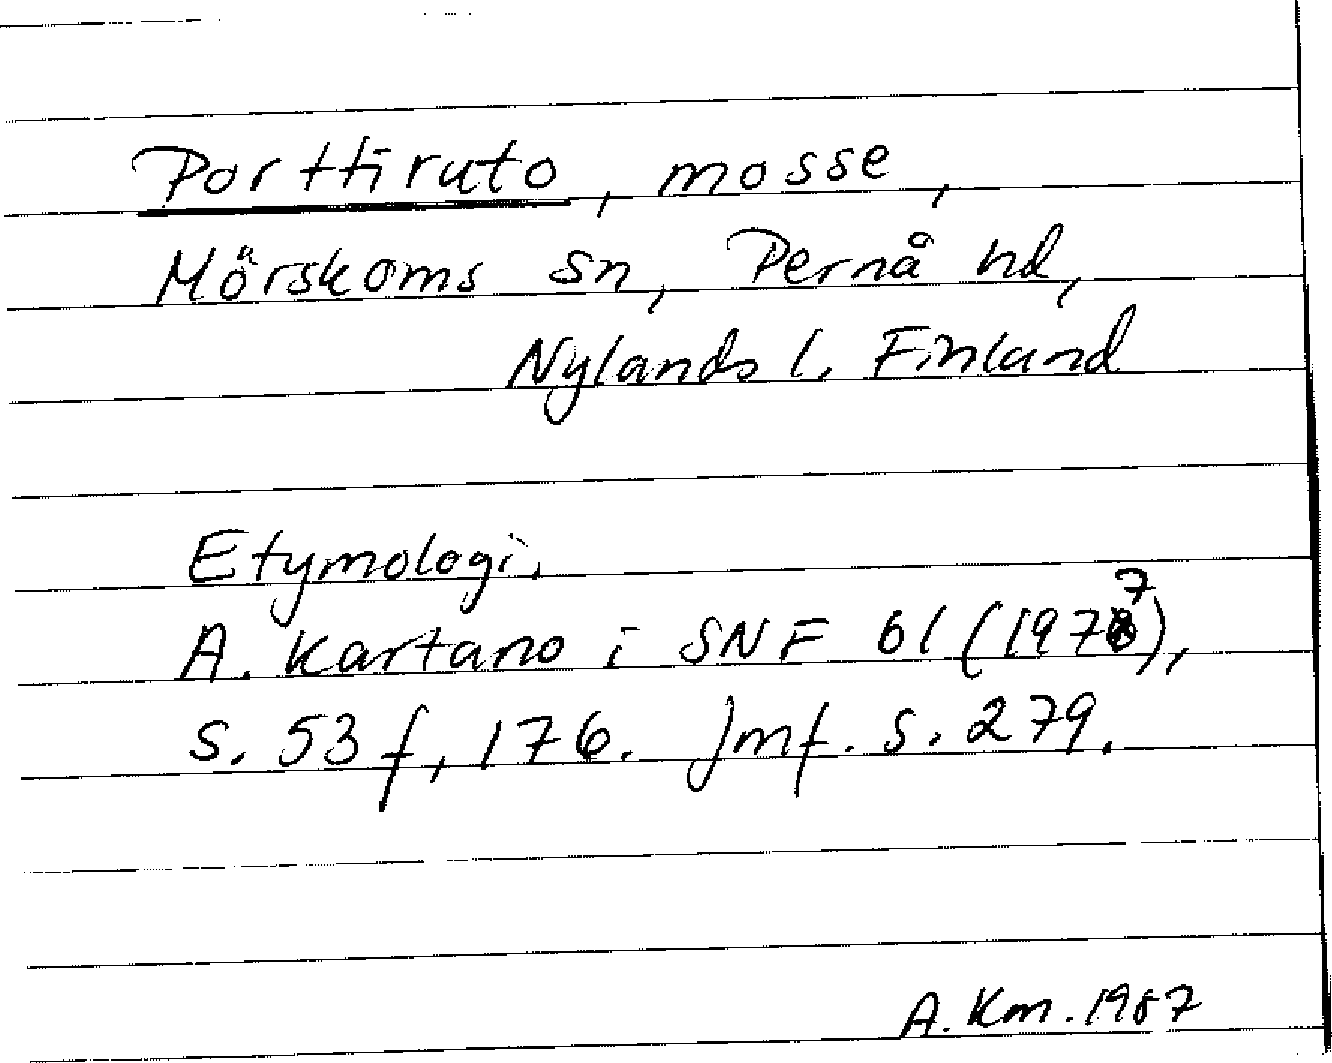 Porttiruto, mosse,
Mörskoms sn, Pernå hd,
Nylands l. Finland
Etymologi.
A. Kartano i SNF 61 (1977),
s. 53 f, 176. Jmf. s. 279.
A. Km. 1987